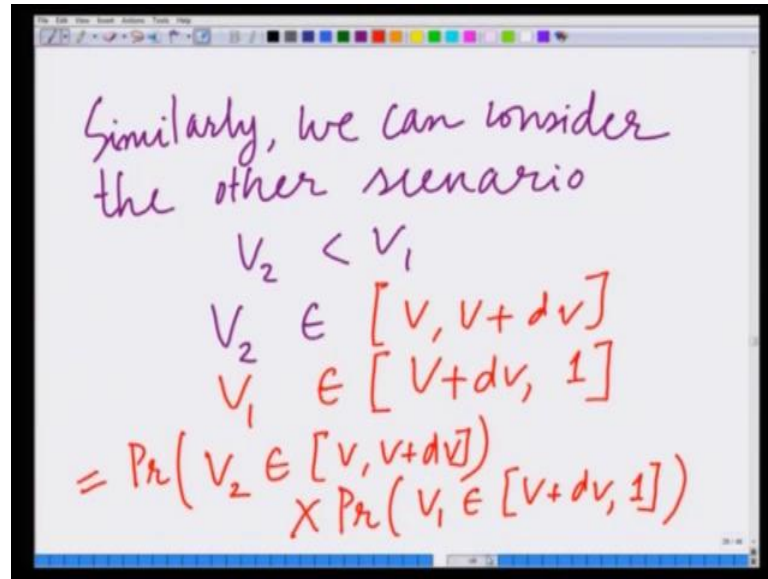 File Edit View Insert Actions Tools Help
Similarly, we can consider
the other scenario
V₂ < V₁
V₂ ∈ [V, V+dv]
V₁ ∈ [V+dv, 1]
= Pr(V₂ ∈ [V, V+dv])
× Pr(V₁ ∈ [V+dv, 1])